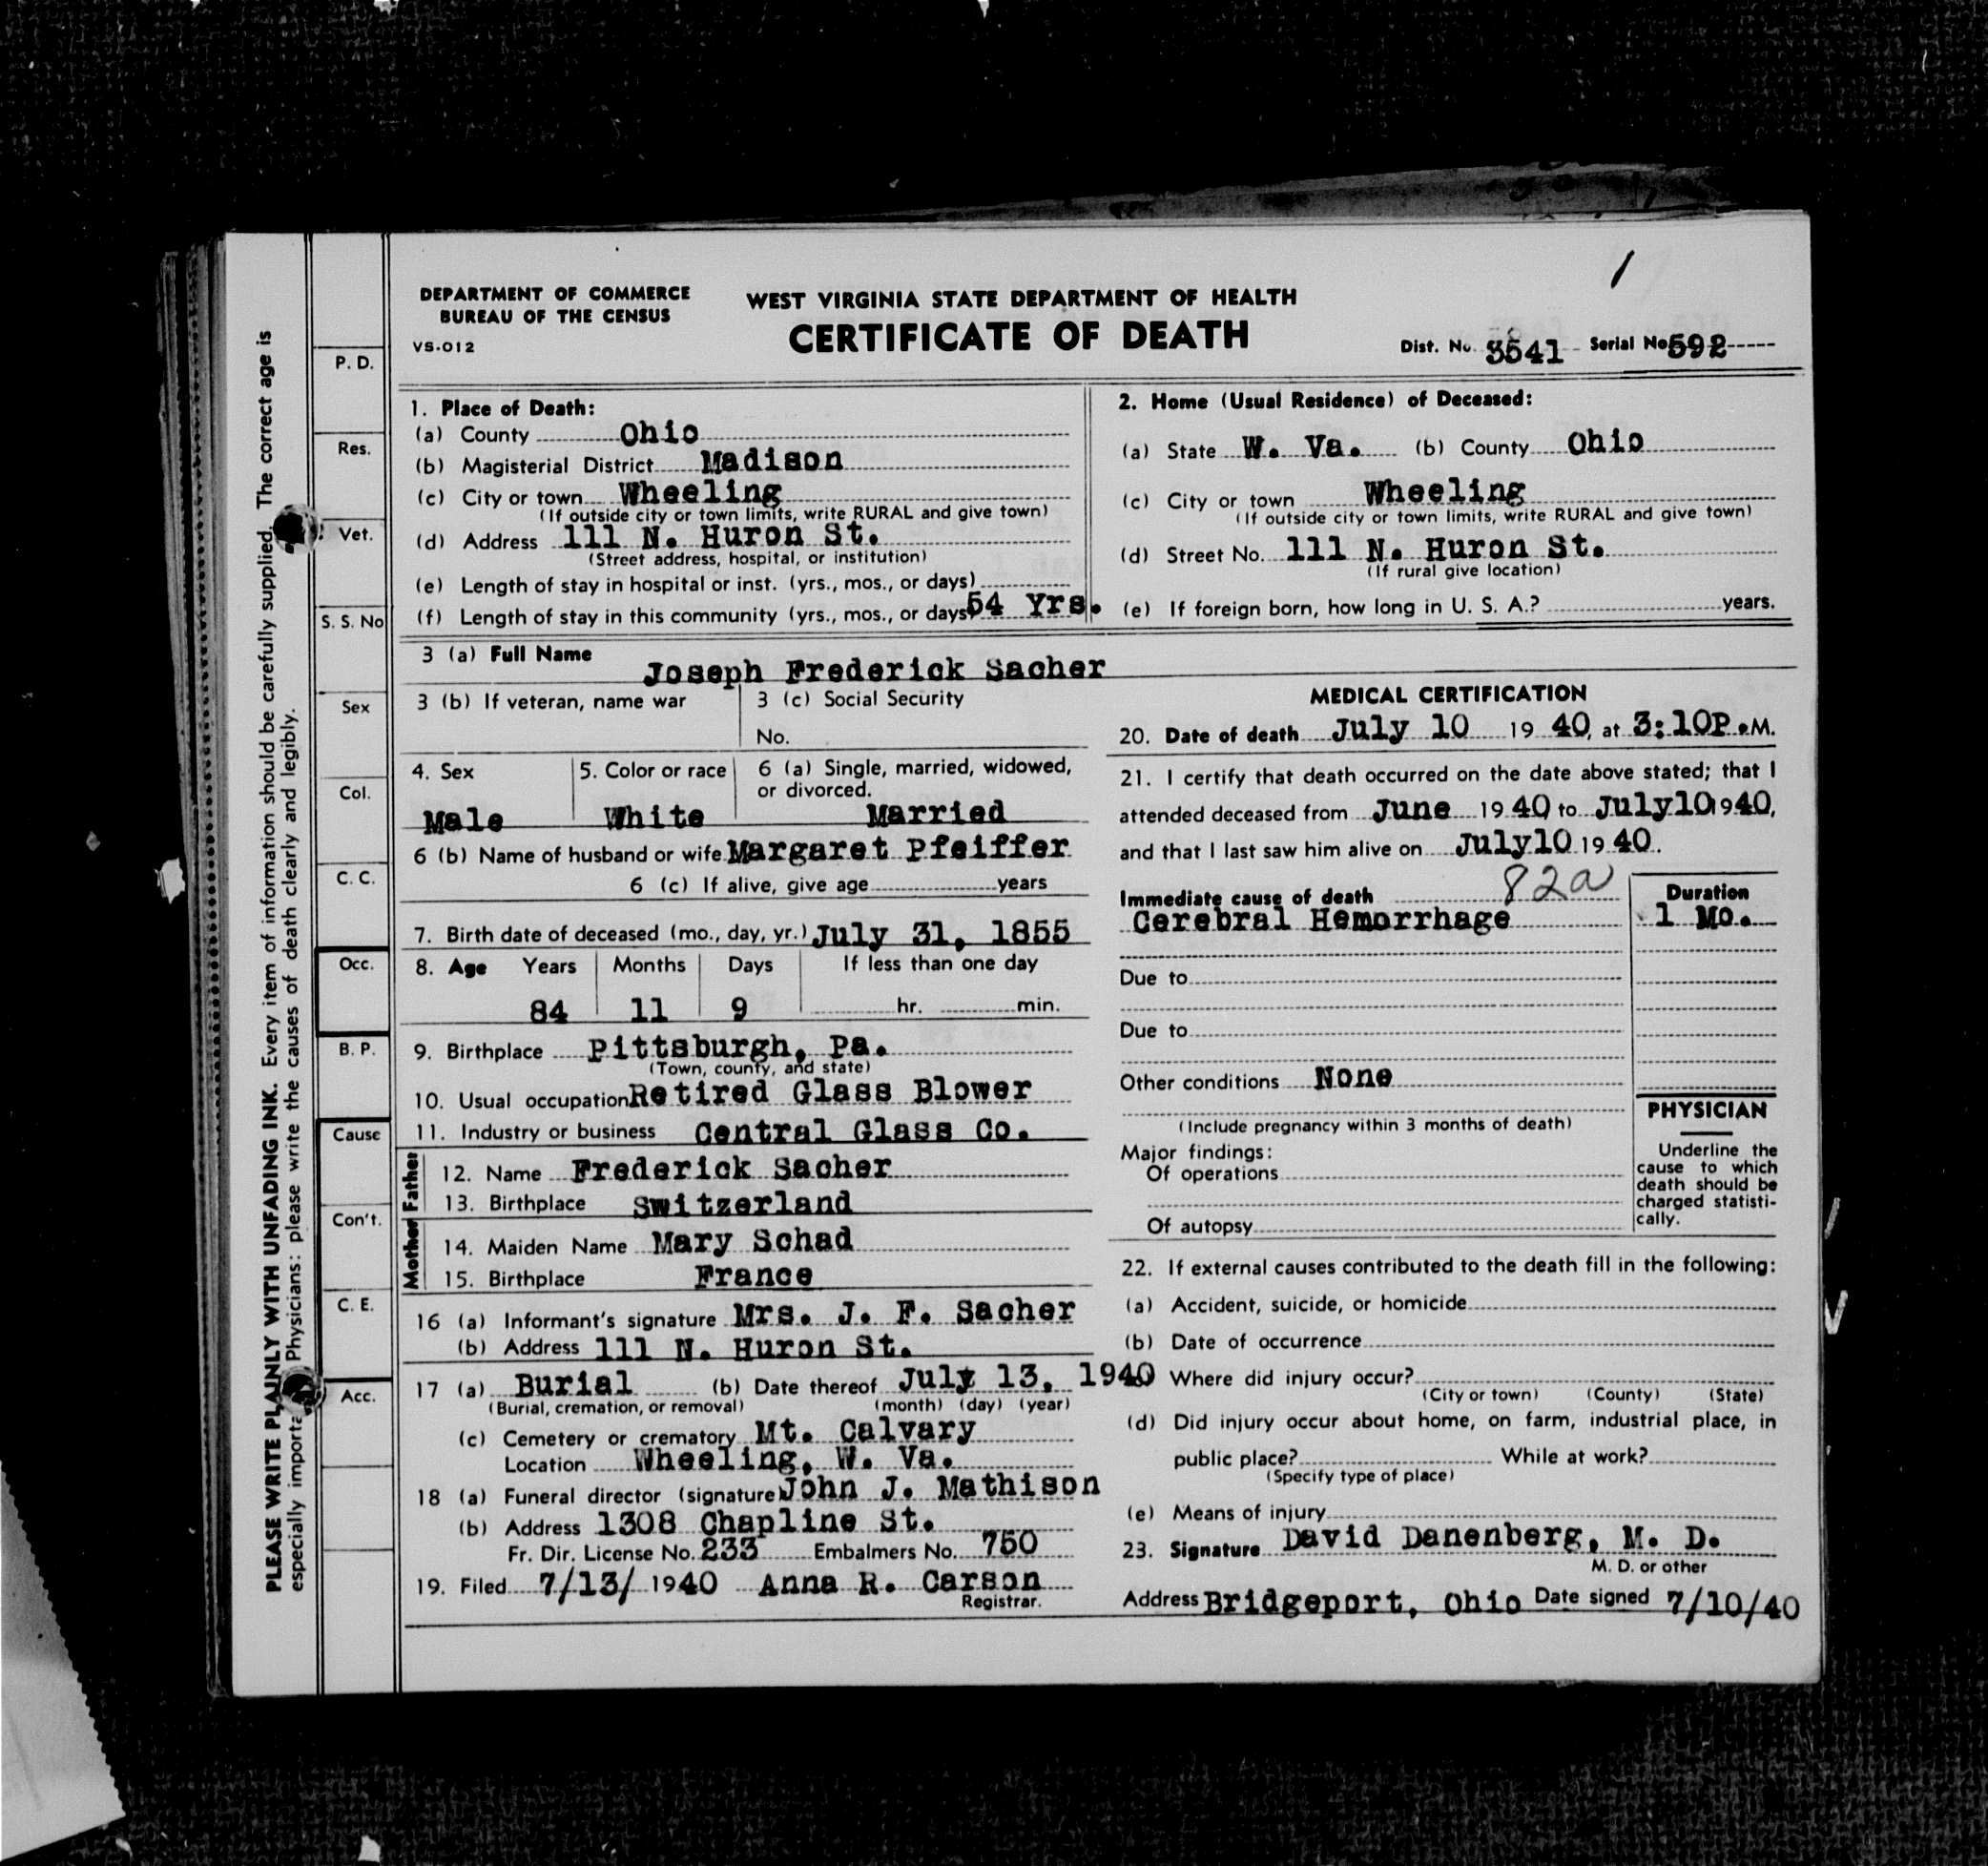 PLEASE WRITE PLAINLY WITH UNFADING INK. Every item of information should be carefully supplied. The correct age is
especially importa Physicians: please write the causes of death clearly and legibly.
P. D.
Res.
Vet.
S. S. No
Sex
Col.
C. C.
Occ.
B. P.
Cause
Con't.
C. E.
Acc.
1
DEPARTMENT OF COMMERCE
BUREAU OF THE CENSUS
VS-012
WEST VIRGINIA STATE DEPARTMENT OF HEALTH
CERTIFICATE OF DEATH
Dist. No. 3541 Serial No 592
1. Place of Death:
(a) County Ohio
(b) Magisterial District Madison
(c) City or town Wheeling
(If outside city or town limits, write RURAL and give town)
(d) Address 111 N. Huron St.
(Street address, hospital, or institution)
(e) Length of stay in hospital or inst. (yrs., mos., or days)
(f) Length of stay in this community (yrs., mos., or days) 54 Yrs.
2. Home (Usual Residence) of Deceased:
(a) State W. Va. (b) County Ohio
(c) City or town Wheeling
(If outside city or town limits, write RURAL and give town)
(d) Street No. 111 N. Huron St.
(If rural give location)
(e) If foreign born, how long in U. S. A.? years.
3 (a) Full Name Joseph Frederick Sacher
3 (b) If veteran, name war
3 (c) Social Security
No.
4. Sex
Male
5. Color or race
White
6 (a) Single, married, widowed,
or divorced.
Married
6 (b) Name of husband or wife Margaret Pfeiffer
6 (c) If alive, give age years
7. Birth date of deceased (mo., day, yr.) July 31, 1855
8. Age Years Months Days If less than one day
84 11 9 hr. min.
9. Birthplace Pittsburgh, Pa.
(Town, county, and state)
10. Usual occupation Retired Glass Blower
11. Industry or business Central Glass Co.
Father
12. Name Frederick Sacher
13. Birthplace Switzerland
Mother
14. Maiden Name Mary Schad
15. Birthplace France
16 (a) Informant's signature Mrs. J. F. Sacher
(b) Address 111 N. Huron St.
17 (a) Burial (b) Date thereof July 13, 1940
(Burial, cremation, or removal) (month) (day) (year)
(c) Cemetery or crematory Mt. Calvary
Location Wheeling, W. Va.
18 (a) Funeral director (signature) John J. Mathison
(b) Address 1308 Chapline St.
Fr. Dir. License No. 233 Embalmers No. 750
19. Filed 7/13/ 1940 Anna R. Carson
Registrar.
MEDICAL CERTIFICATION
20. Date of death July 10 19 40, at 3:10P.M.
21. I certify that death occurred on the date above stated; that I
attended deceased from June 19 40, to July 10 1940,
and that I last saw him alive on July 10 19 40.
Immediate cause of death 82a
Cerebral Hemorrhage
Duration
1 Mo.
Due to
Due to
Other conditions None
(Include pregnancy within 3 months of death)
Major findings:
Of operations
Of autopsy
PHYSICIAN
Underline the
cause to which
death should be
charged statisti-
cally.
22. If external causes contributed to the death fill in the following:
(a) Accident, suicide, or homicide
(b) Date of occurrence
Where did injury occur?
(City or town) (County) (State)
(d) Did injury occur about home, on farm, industrial place, in
public place? While at work?
(Specify type of place)
(e) Means of injury
23. Signature David Danenberg, M. D.
M. D. or other
Address Bridgeport, Ohio Date signed 7/10/40